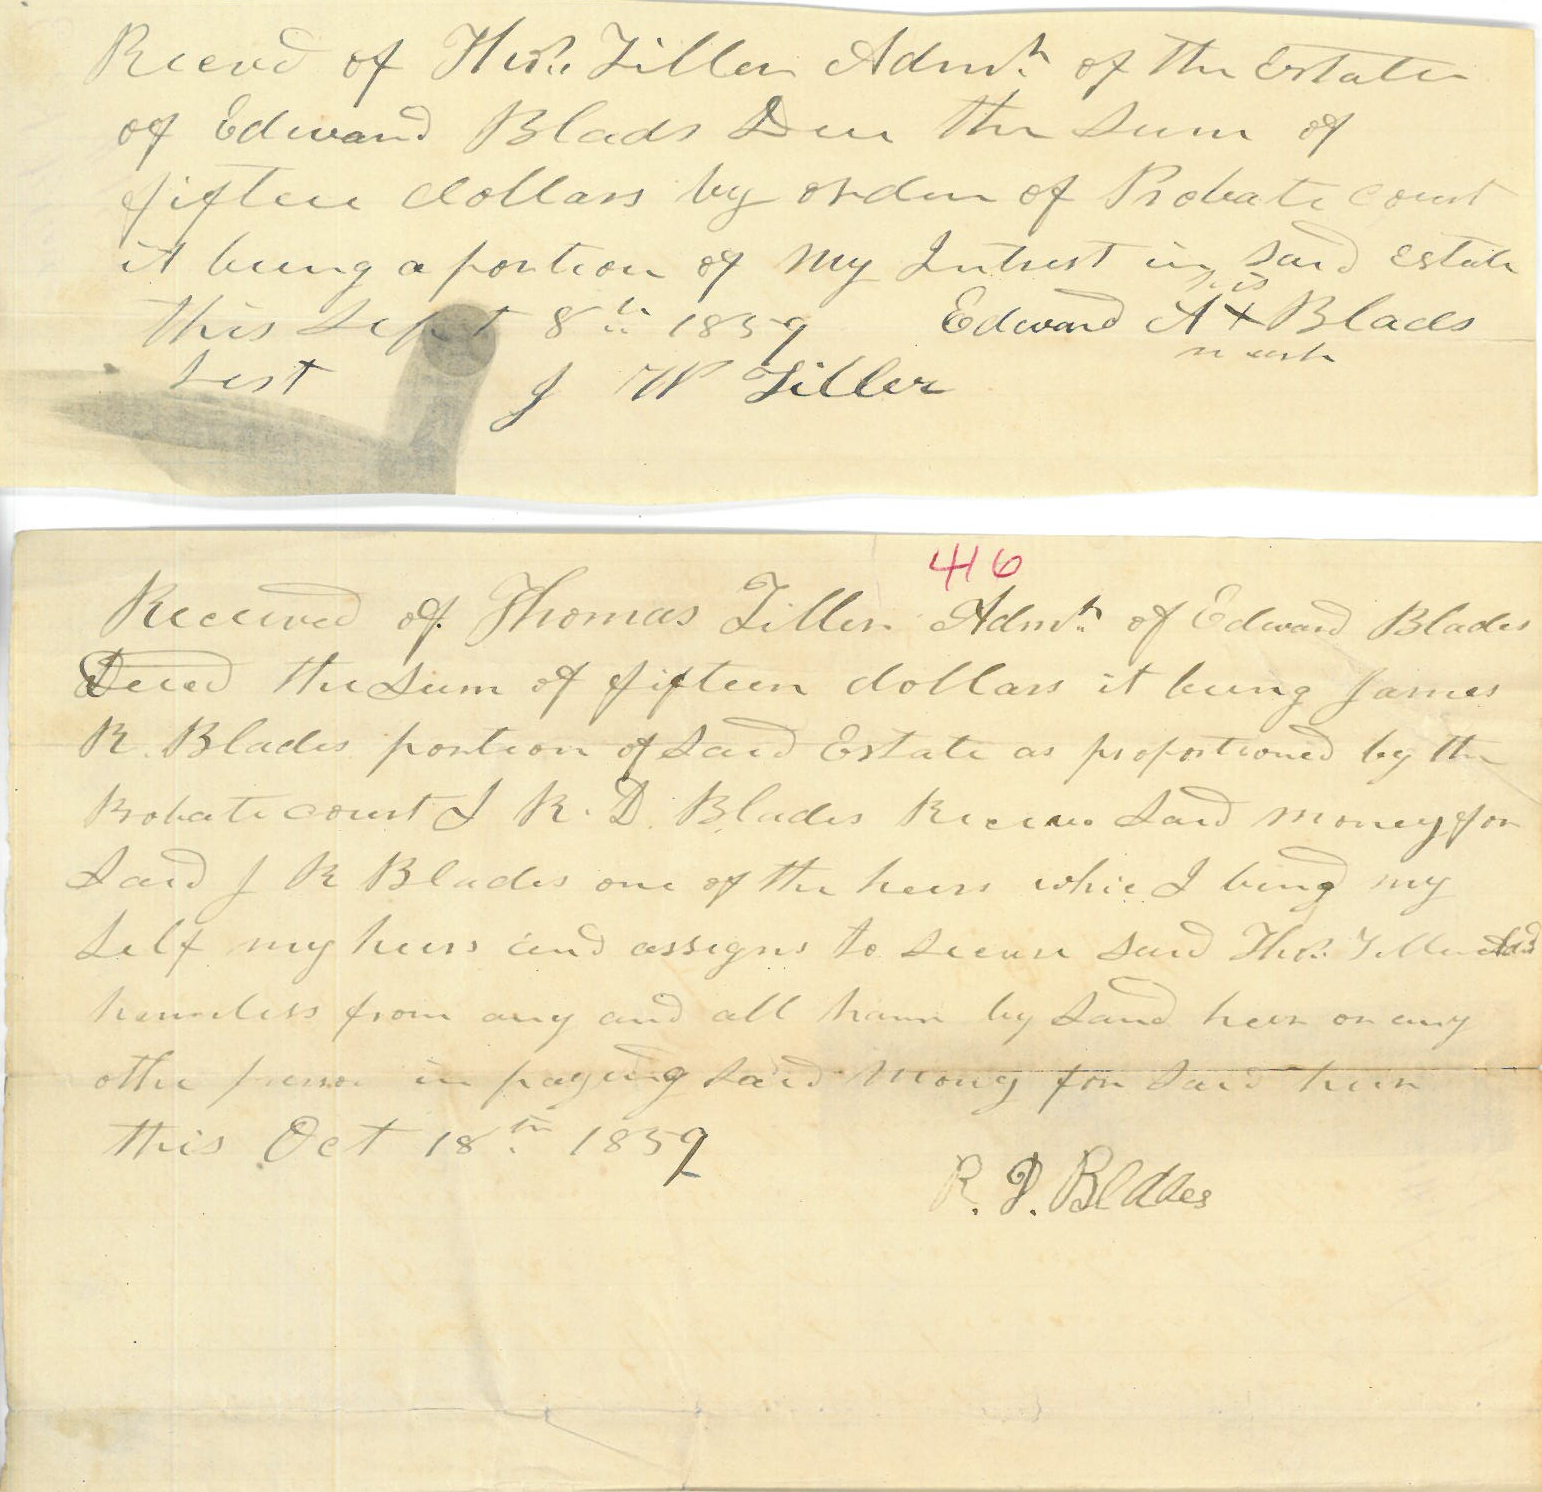 Recevd of Thos. Tiller Admr. of the Estate
of Edward Blads Dec the sum of
fifteen dollars by order of Probate court
it being a portion of my Intrest in said estate
his
this Sept 8th 1859 Edward A X Blads
mark
test J W Tiller
416
Received of Thomas Tiller Admr. of Edward Blades
Deced the sum of fifteen dollars it being James
R. Blades portion of said Estate as proportioned by the
Probate court I R. D. Blades Receive said money for
said J R Blades one of the heirs I bind my
self my heirs and assigns to secure said Thos. Tiller
harmless from any and all harm by said heir or any
othe person in paying said money for said heir
this Oct 18th 1859
R. D. Blades